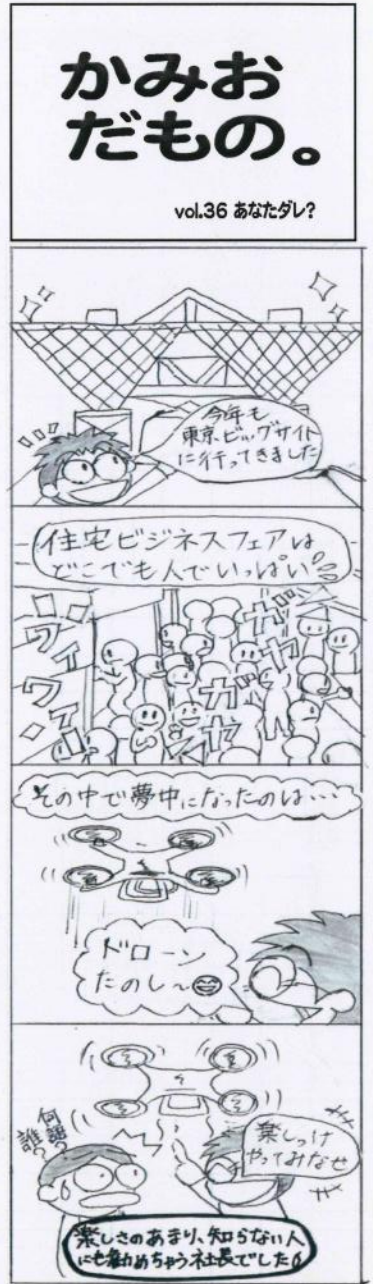 かみお
だもの。
vol.36 あなたダレ?
今年も
東京ビッグサイト
に行ってきました
住宅ビジネスフェアは
どこでも人でいっぱい
ワイワイ
ガヤガヤ
その中で夢中になったのは…
ドローン
たのし〜
何語?
誰?
楽しっけ
やってみなせ
楽しさのあまり、知らない人
にも勧めちゃう社長でした